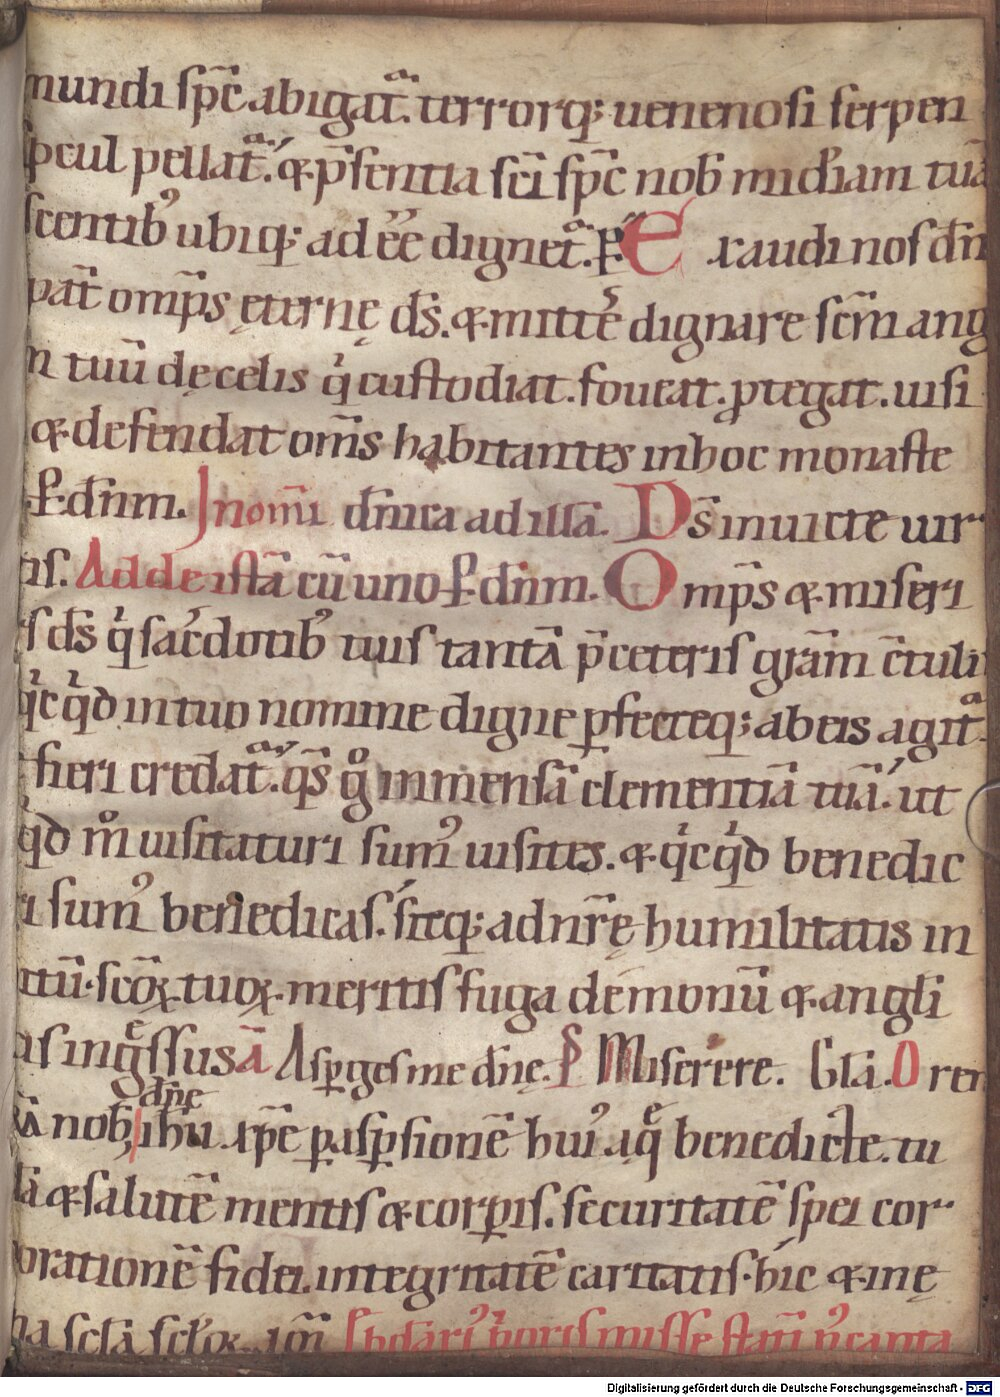 mundi sp̄c abigat̄. terrorq; uenenosi serpen
pcul pellat̄. & p̄sentia sc̄i sp̄c nob̄ mīdiam tuā
scentib᾿ ubiq; adēē dignet̄. p̄ Exaudi nos dn̄
pat̄ omp̄s ęternę ds̄. & mitt̄e dignare sc̄m ang
m tuū dęcelis q̇ custodiat. foueat. ptegat. uisi
& defendat om̄s habitantes inhoc monaste
P̄ dn̄m. In nom̄i dn̄ica adillā. Ds̄ inuicte uir
is. Adde istā cū uno p̄ dn̄m. Omp̄s & miseri
s ds̄ q̇ sac̄dotib᾿ tuis tantā p̄ceteris grām c̄tuli
q̇cq̇d intuo nomine digne pfecteq; abeis agit̄
fieri credat̄. qs̄ g̊ inmensā clementiā tuā. ut
qd m̊ uisitaturi sum᾿ uisites. & q̇cq̇d benedic
i sum᾿ benedicas. sitq; adnr̄ę humilitatis in
itū. scōꝝ tuoꝝ. meritis fuga demonū & angli
is ingssus a Asperges me dn̄ę. P̄s Miserere. Gl̄a. Orem
a nob̄ dn̄e ihu xp̄e paspsionē hui᾿ aq̄ benedicte. tu
lā & salutē mentis & corpis. securitatē spei cor
orationē fidei. integritatē caritatis. hic & inę